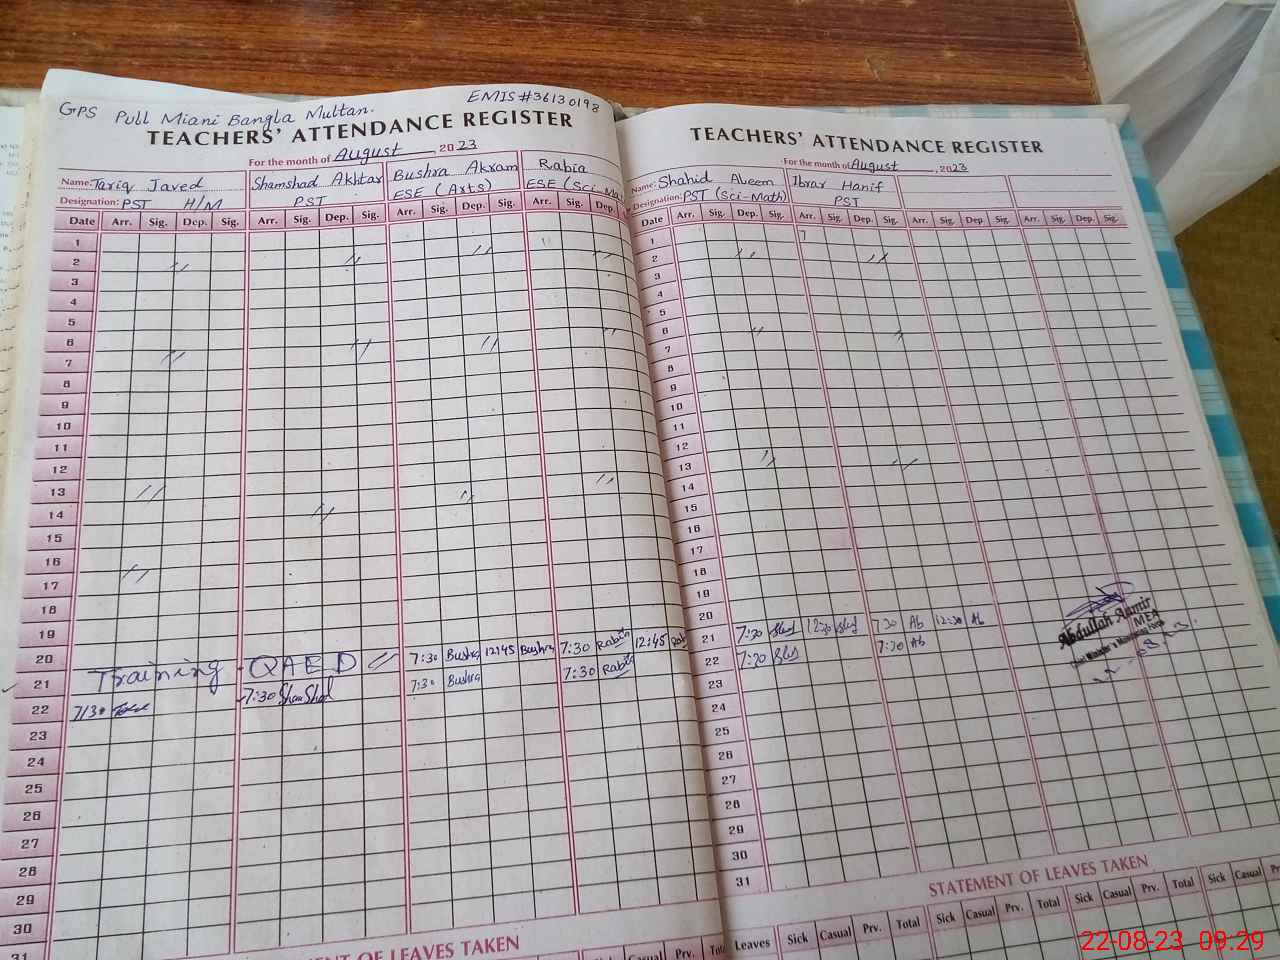 GPS Pull Miani Bangla Multan. EMIS#36130198
TEACHERS' ATTENDANCE REGISTER
For the month of August 2023
Name: Tariq Javed Shamshad Akhtar Bushra Akram Rabia
Designation: PST H/M PST ESE (Arts) ESE (Sci Ma
Date Arr. Sig. Dep. Sig. Arr. Sig. Dep. Sig. Arr. Sig. Dep. Sig. Arr. Sig. Dep.
1
2
3
4
5
6
7
8
9
10
11
12
13
14
15
16
17
18
19
20
21 Training - QAED 7:30 Bushra 12:45 Bushra 7:30 Rabia 12:45 Rab
22 7:30 7:30 Shamshad 7:30 Bushra 7:30 Rabia
23
24
25
26
27
28
29
30
31
STATEMENT OF LEAVES TAKEN
Sick Casual Prv. Total
TEACHERS' ATTENDANCE REGISTER
For the month of August, 2023
Name: Shahid Aleem Ibrar Hanif
Designation: PST (Sci-Math) PST
Date Arr. Sig. Dep. Sig. Arr. Sig. Dep. Sig. Arr. Sig. Dep. Sig. Arr. Sig. Dep. Sig.
1
2
3
4
5
6
7
8
9
10
11
12
13
14
15
16
17
18
19
20
21 7:30 12:30 7:30 Ab 12:30 Ab
22 7:30 7:30 Ab
23
24
25
26
27
28
29
30
31
Abdullah Aamir
MEA
STATEMENT OF LEAVES TAKEN
Leaves Sick Casual Prv. Total Sick Casual Prv. Total Sick Casual Prv. Total Sick Casual
22-08-23 09:29